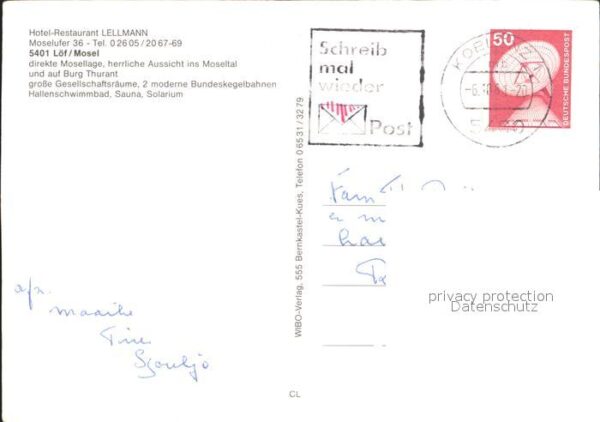 Hotel-Restaurant LELLMANN
Moselufer 36 - Tel. 0 26 05 / 20 67-69
5401 Löf/Mosel
direkte Mosellage, herrliche Aussicht ins Moseltal
und auf Burg Thurant
große Gesellschaftsräume, 2 moderne Bundeskegelbahnen
Hallenschwimmbad, Sauna, Solarium
Schreib
mal
wieder
Post
50
DEUTSCHE BUNDESPOST
WIBO-Verlag, 555 Bernkastel-Kues, Telefon 0 65 31 / 32 79
Fam
afz.
Maaike
Tine
privacy protection
Datenschutz
CL